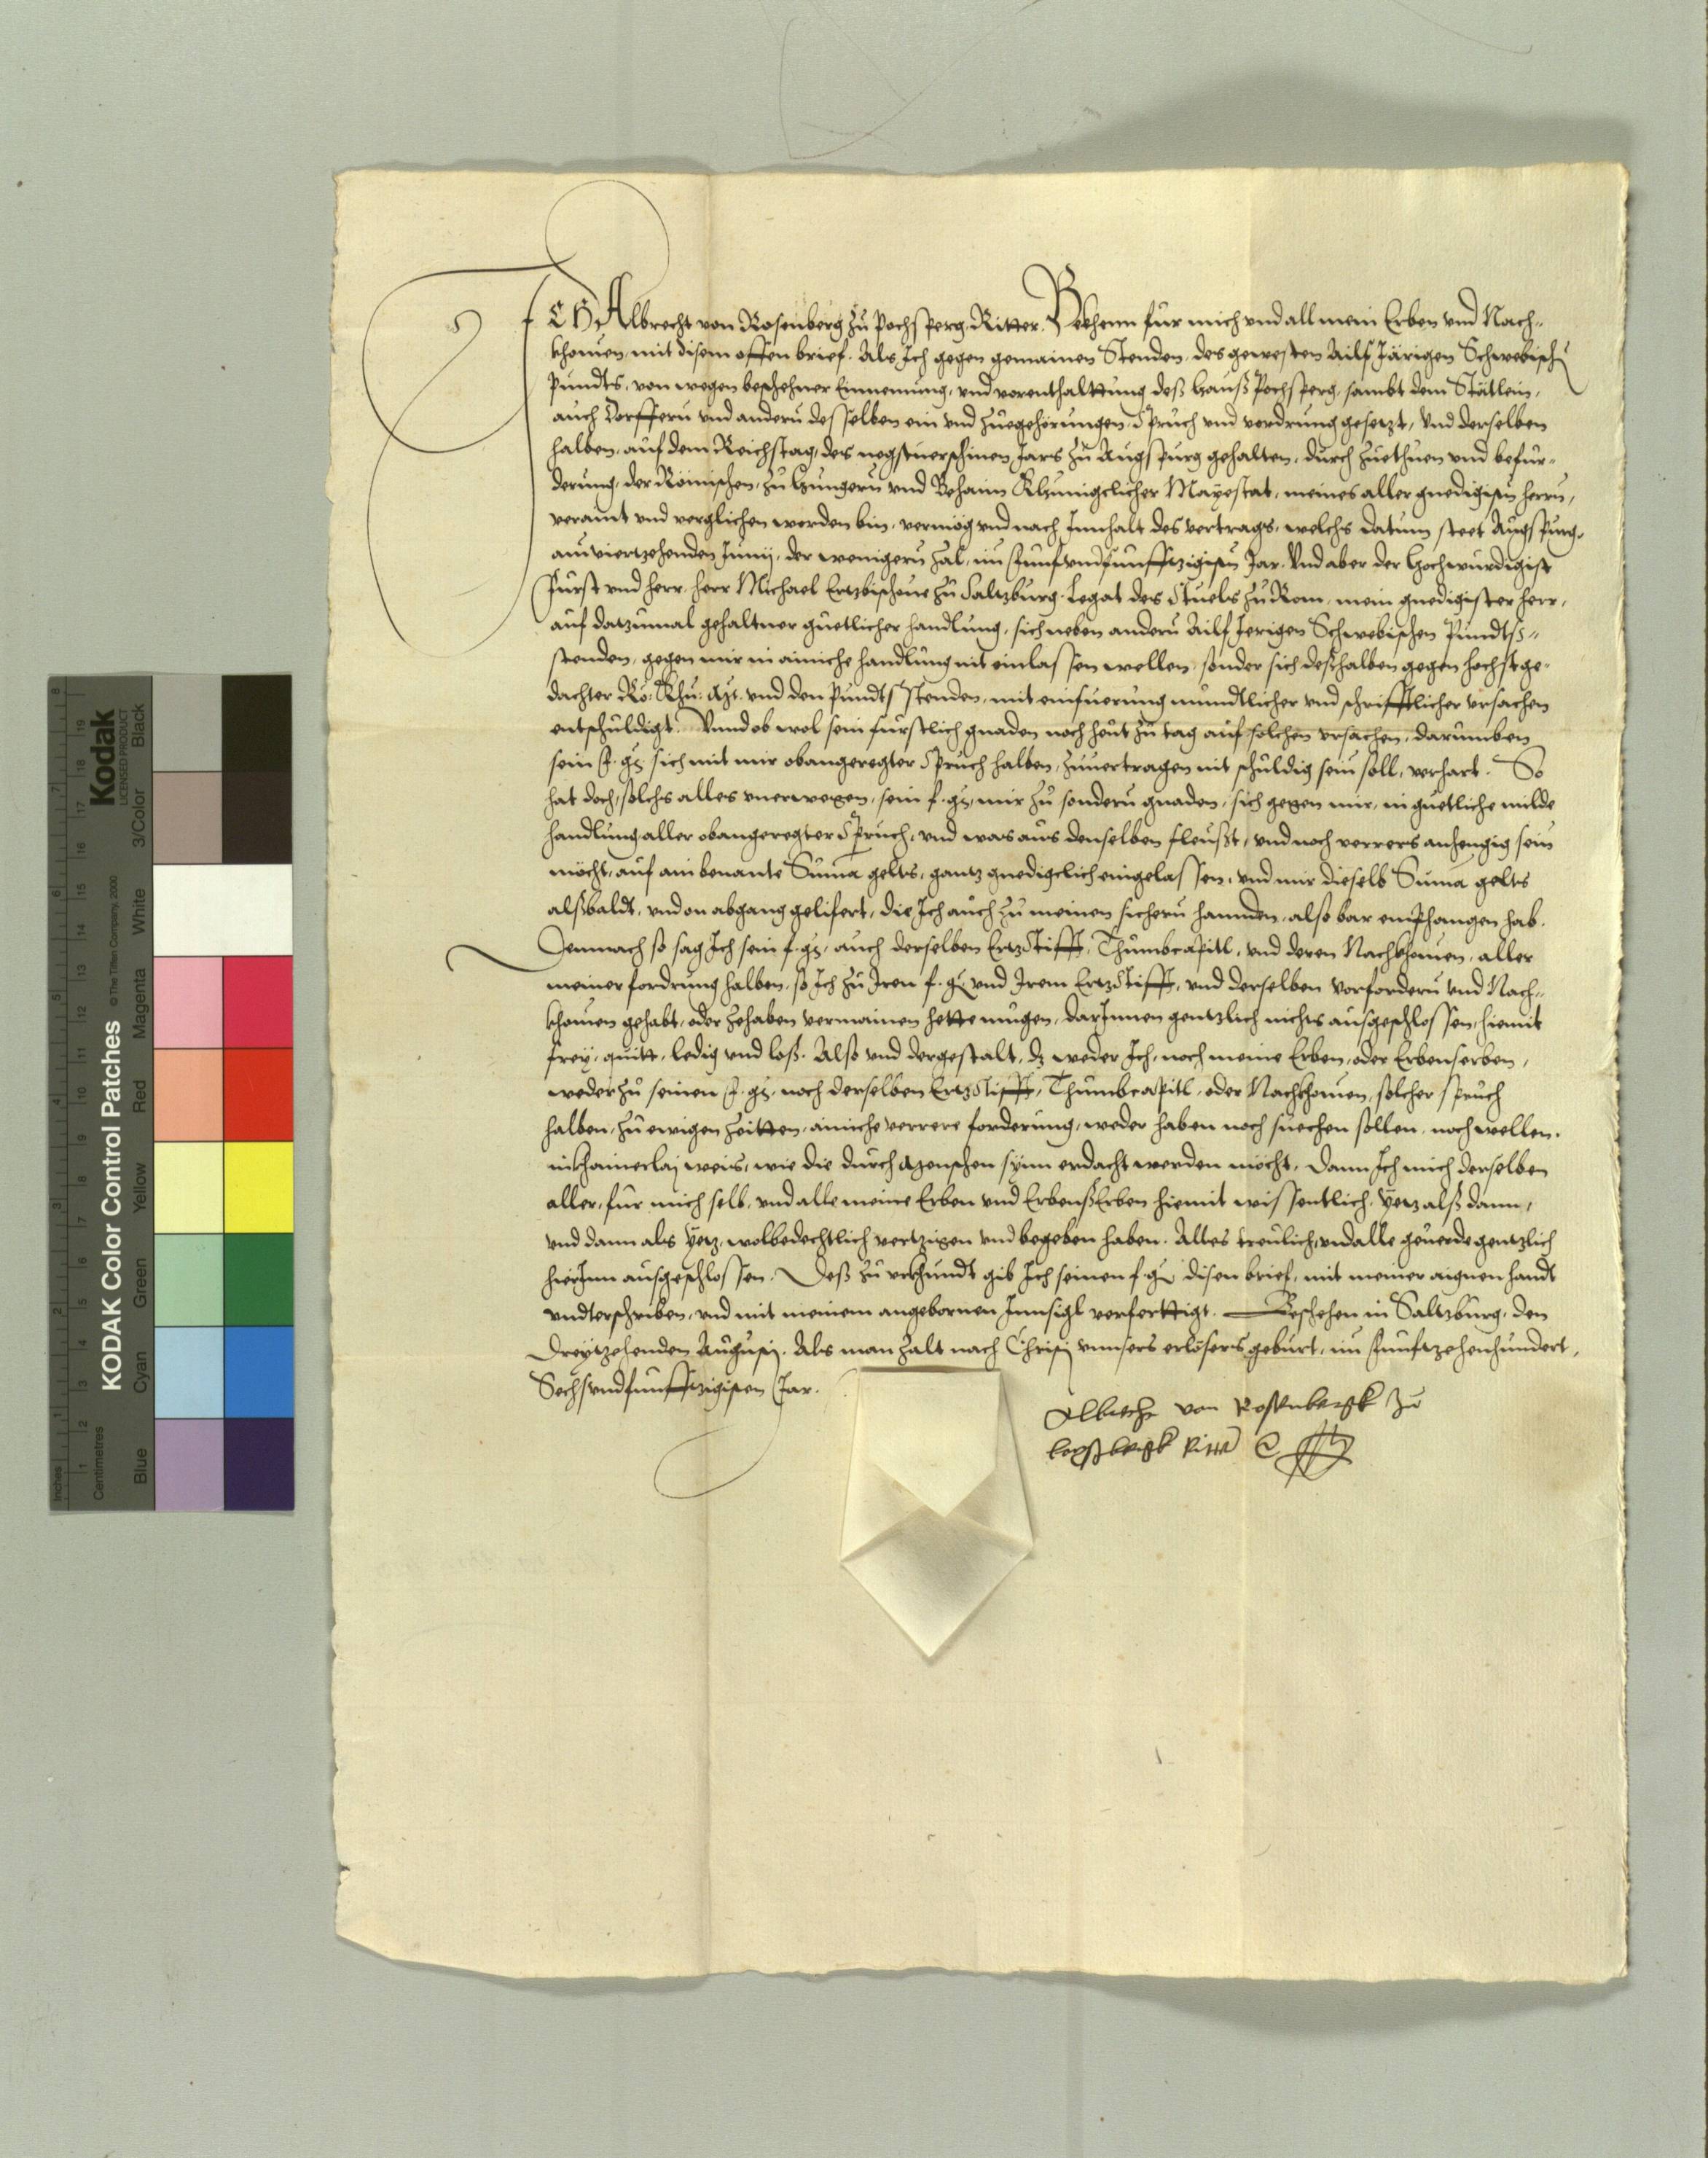 ICH Albrecht von Rosenberg zu Pochsperg, Ritter. Bekhenn für mich vnd all mein Erben vnd Nach-
khomen, mit disem offen brief. Als Ich gegen gemainen Stenden, des gewesten Ailf Järigen Schwebischen
Pundts, von wegen beschehner Einnemung, vnd vorenthalttung deß Hauß Pochsperg, sambt dem Stätlein,
auch Dorffern vnd andern desselben ein vnd zuegehörungen, Spruch vnd vordrung gesetzt, Vnd derselben
halben, auf dem Reichstag, des negstuerschinen Jars zu Augspurg gehalten, durch zuethuen vnd befür-
derung, der Römischen, zu Hungern vnd Behaim Khunigclicher Mayestat, meines aller gnedigisten herrn,
veraint vnd verglichen worden bin, vermög vnd nach Innhalt des vertrags, welchs datum steet Augspurg,
am viertzehenden Junij, der wenigern zal, im funfvndfunfftzigisten Jar. Vnd aber der Hochwurdigist
Furst vnd herr, herr Michael Ertzbischoue zu Saltzburg, Legat des Stuels zu Rom, mein gnedigister herr,
auf datzumal gehaltner guetlicher handlung, sich neben andern Ailf Jerigen Schwebischen Pundtß-
stenden, gegen mir in ainiche handlung nit einlassen wellen, sonder sich deßhalben gegen hochstge-
dachter Rö: Khu: Mt. vnd den Pundtsstenden, mit einfuerung mundtlicher vnd schrifftlicher vrsachen
entschuldigt. Vnnd ob wol sein furstlich gnaden noch heut zu tag auf solchen vrsachen, darumben
sein f. g. sich mit mir obangeregter Spruch halben, zuuertragen nit schuldig sein soll, verhart. So
hat doch, solchs alles vnerwegen, sein f. g. mir zu sondern gnaden, sich gegen mir, in guetliche milde
handlung aller obangeregter Spruch, vnd was aus denselben fleusst, vnd noch verrers anhengig sein
möcht, auf ain benante Suma gelts, gantz gnedigclich eingelassen, vnd mir dieselb Suma gelts
alßbaldt, vnd on abgang gelifert, die Ich auch zu meinen sichern hannden, also bar emphangen hab.
Demnach so sag Ich sein f. g. auch derselben Ertzstifft, Thumbcapitl, vnd deren Nachkhomen, aller
meiner fordrung halben, so Ich zu Iren f. g. vnd Irem Ertzstifft, vnd derselben Vorfordern vnd Nach-
khomen gehabt, oder zehaben vermainen hette mugen, darInnen gentzlich nichts ausgeschlossen, hiemit
frey, quitt, ledig vnd loß. Also vnd dergestalt, dz weder Ich, noch meine Erben, oder Erbenserben,
weder zu seinen f. g. noch derselben Ertzstifft, Thumbcapitl, oder Nachkhomen, solcher spruch
halben, zu ewigen zeitten, ainiche verrere forderung, weder haben noch suechen sollen, noch wellen,
in khainerlaj weis, wie die durch Menschen synn erdacht werden möcht. Dann Ich mich derselben
aller, für mich selb, vnd alle meine Erben vnd ErbenßErben hiemit wissentlich, Yetz alß dann,
vnd dann als Yetz, wolbedechtlich vertzigen vnd begeben haben. Alles treulich, vnd alle geuerde gentzlich
hierInn ausgeschlossen. Deß zu vrkhundt gib Ich seinen f. g. disen brief, mit meiner aignen handt
vndterschriben, vnd mit meinem angebornen Innsigl verferttigt. Beschehen in Saltzburg, den
dreytzehenden Augusti. Als man zalt nach Christi vnnsers erlösers geburt, im funftzehenhundert,
Sechsvndfunfftzigisten Jar.
Albrecht von Rossenbergk zu
boxsbergk Ritter
Inches
Centimetres
KODAK Color Control Patches
© The Tiffen Company, 2000
Kodak
LICENSED PRODUCT
Blue
Cyan
Green
Yellow
Red
Magenta
White
3/Color
Black